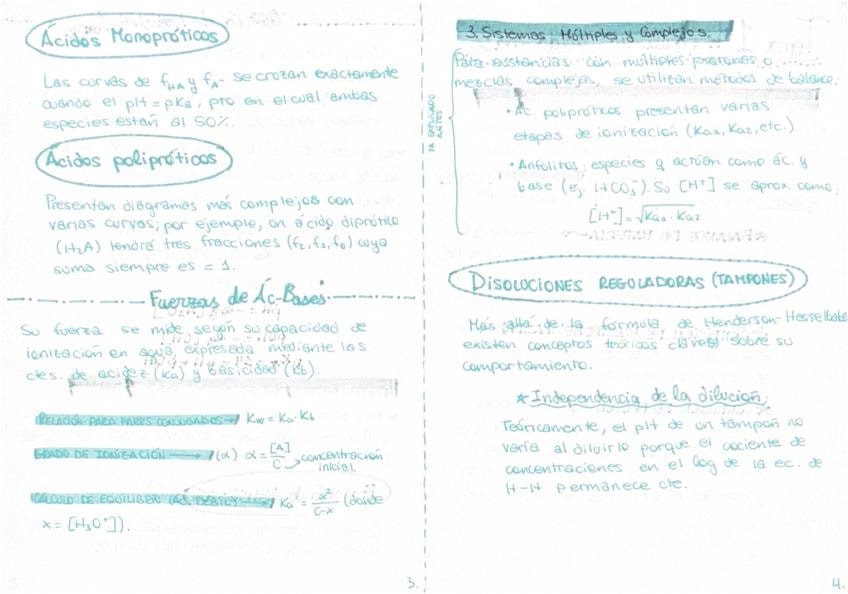 Ácidos Monopróticos
Las curvas de fHA y fA- se cruzan exactamente
cuando el pH = pKa, pto en el cual ambas
especies están al 50%.
Ácidos polipróticos
Presentan diagramas más complejos con
varias curvas; por ejemplo, un ácido diprótico
(H₂A) tendrá tres fracciones (f₂, f₁, f₀) cuya
suma siempre es = 1.
Fuerzas de Ác-Bases
Su fuerza se mide según su capacidad de
ionización en agua, expresada mediante las
ctes. de acidez (Ka) y basicidad (Kb).
RELACIÓN PARA PARES CONJUGADOS → Kw = Ka · Kb
GRADO DE IONIZACIÓN → (α) α = [A]/C → concentración
inicial.
CÁLCULO DE EQUILIBRIO (AC. DÉBIL) → Ka = x²/C-x (donde
x = [H₃O⁺]).
3.
3. Sistemas Múltiples y Complejos.
Para sustancias con múltiples protones o
mezclas complejas, se utilizan métodos de balance:
YA EXPLICADO
ANTES
• Ac. polipróticos presentan varias
etapas de ionización (Ka₁, Ka₂, etc.)
• Anfolitos: especies q actúan como ác. y
base (ej. HCO₃⁻). Su [H⁺] se aprox como:
[H⁺] = √Ka₁ · Ka₂
DISOLUCIONES REGULADORAS (TAMPONES)
Más allá de la fórmula de Henderson-Hesselbalc
existen conceptos teóricos claves sobre su
comportamiento.
★ Independencia de la dilución:
Teóricamente, el pH de un tampón no
varía al diluirlo porque el cociente de
concentraciones en el log de la ec. de
H-H permanece cte.
4.